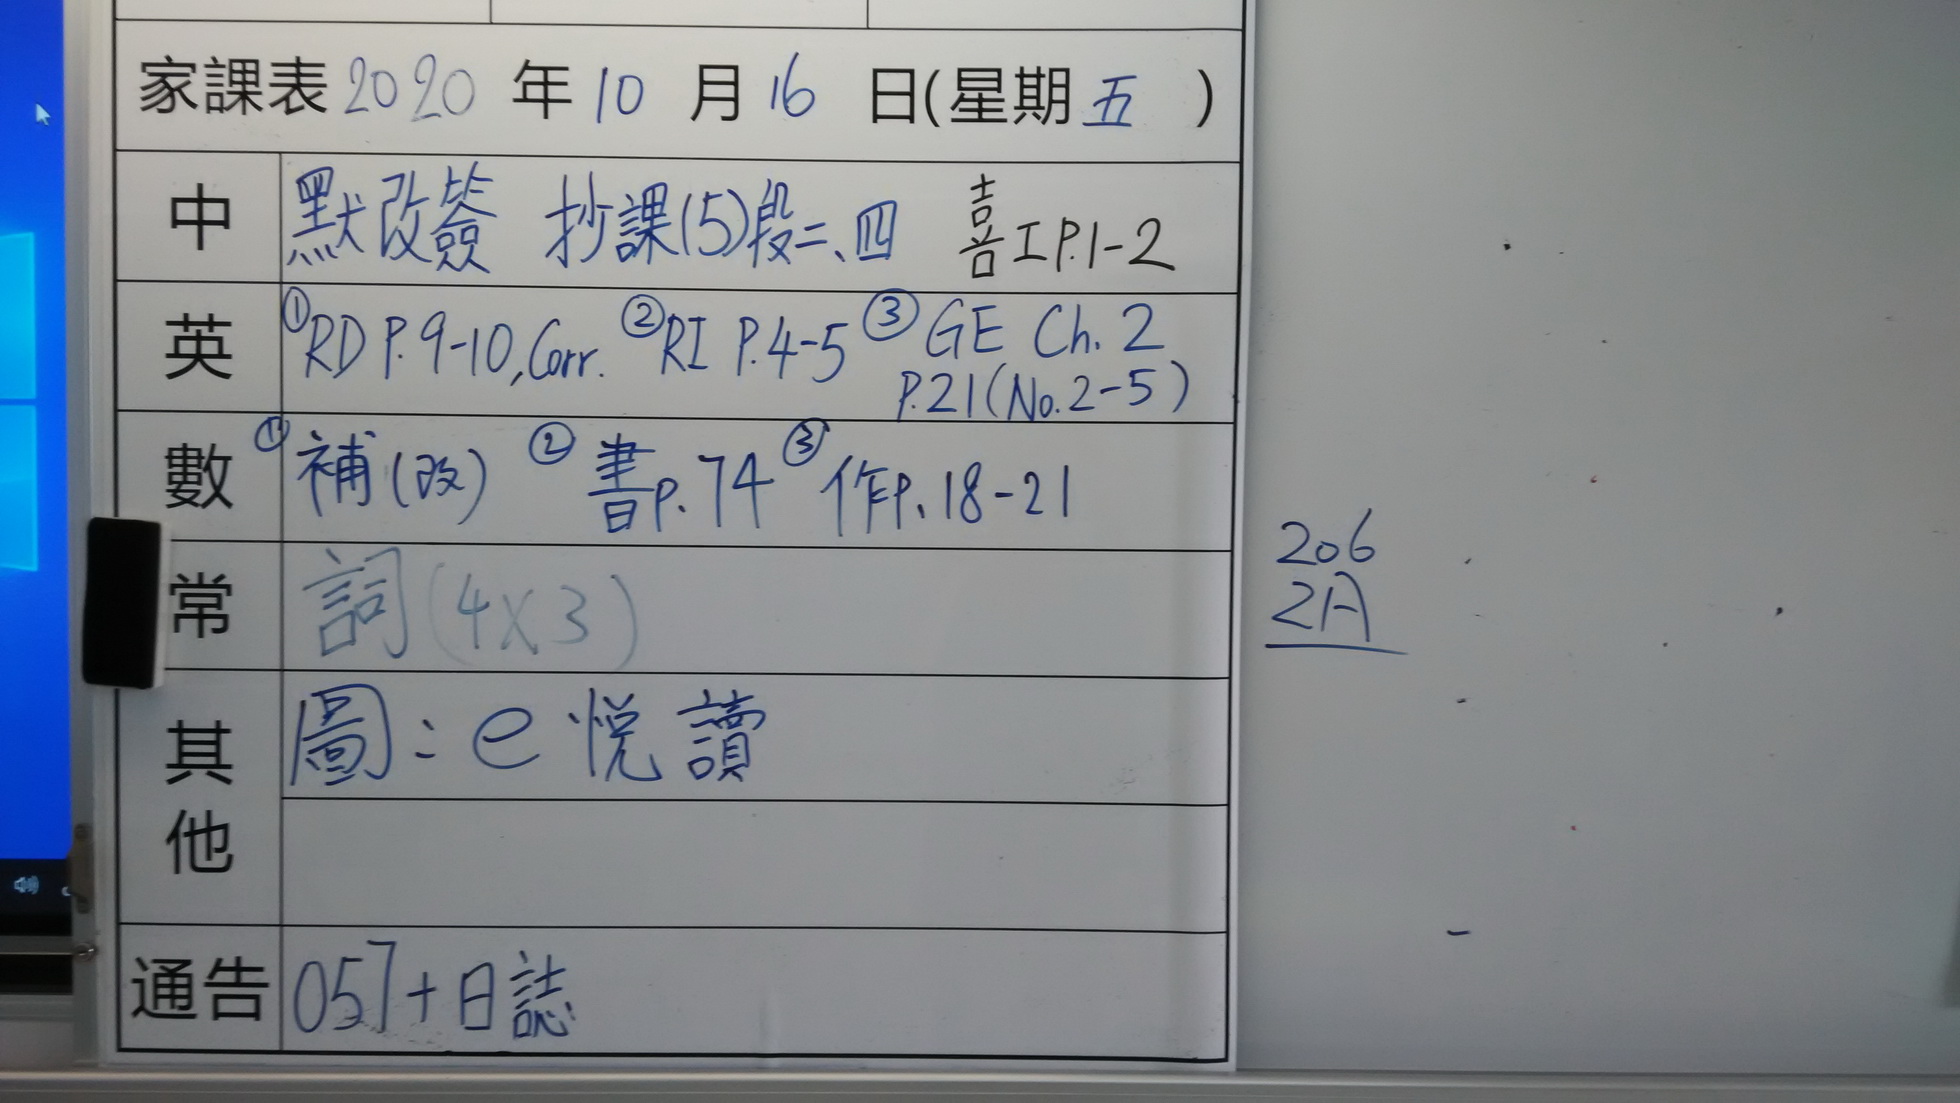 家課表 2020 年 10 月 16 日(星期 五 )
中 默改簽 抄課(5)段二、四 喜工P.1-2
英 ①RD P.9-10, Corr. ②RI P.4-5 ③GE Ch. 2
P.21(No.2-5)
數 ①補(改) ②書p.74 ③作p.18-21
常 詞(4X3)
其他 圖:e悅讀
通告 057+日誌
206
2A